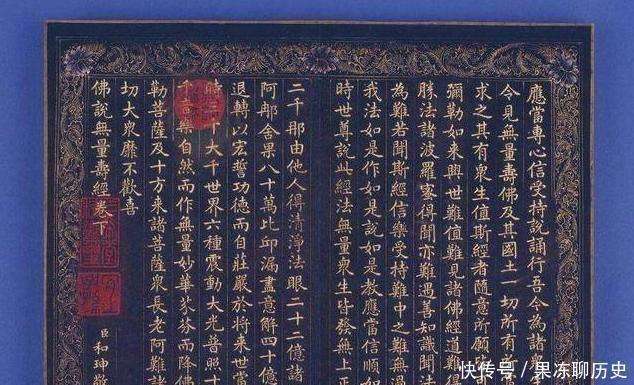 應當專心信受持說誦行吾今為諸眾
今見無量壽佛及其國土一切所有所
求之其有眾生值斯經者隨意所願皆
彌勒如來興世難值難見諸佛經道難
勝法諸波羅蜜得聞亦難遇善知識聞法
為難若聞斯經信樂受持難中之難
我法如是作如是說如是教應當信順如
時世尊說此經法無量眾生皆發無上正
二千那由他人得清淨法眼二十二億諸
阿那舍果八十萬比丘漏盡意解四十億
退轉以宏誓功德而自莊嚴於將來世當
時三千大千世界六種震動大光普照十
千音樂自然而作無量妙華芬芬而降佛
勒菩薩及十方來諸菩薩眾長老阿難諸
切大眾靡不歡喜
佛說無量壽經卷下
臣和珅敬
快传号/果冻聊历史